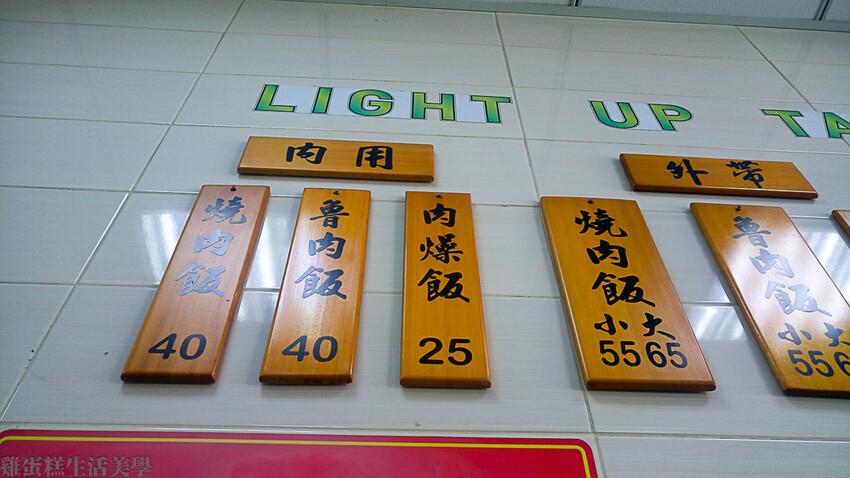 LIGHT UP TA
內用
外帶
燒肉飯
40
魯肉飯
40
肉燥飯
25
燒肉飯
小 大
55 65
魯肉飯
小 大
55 65
雞蛋糕生活美學